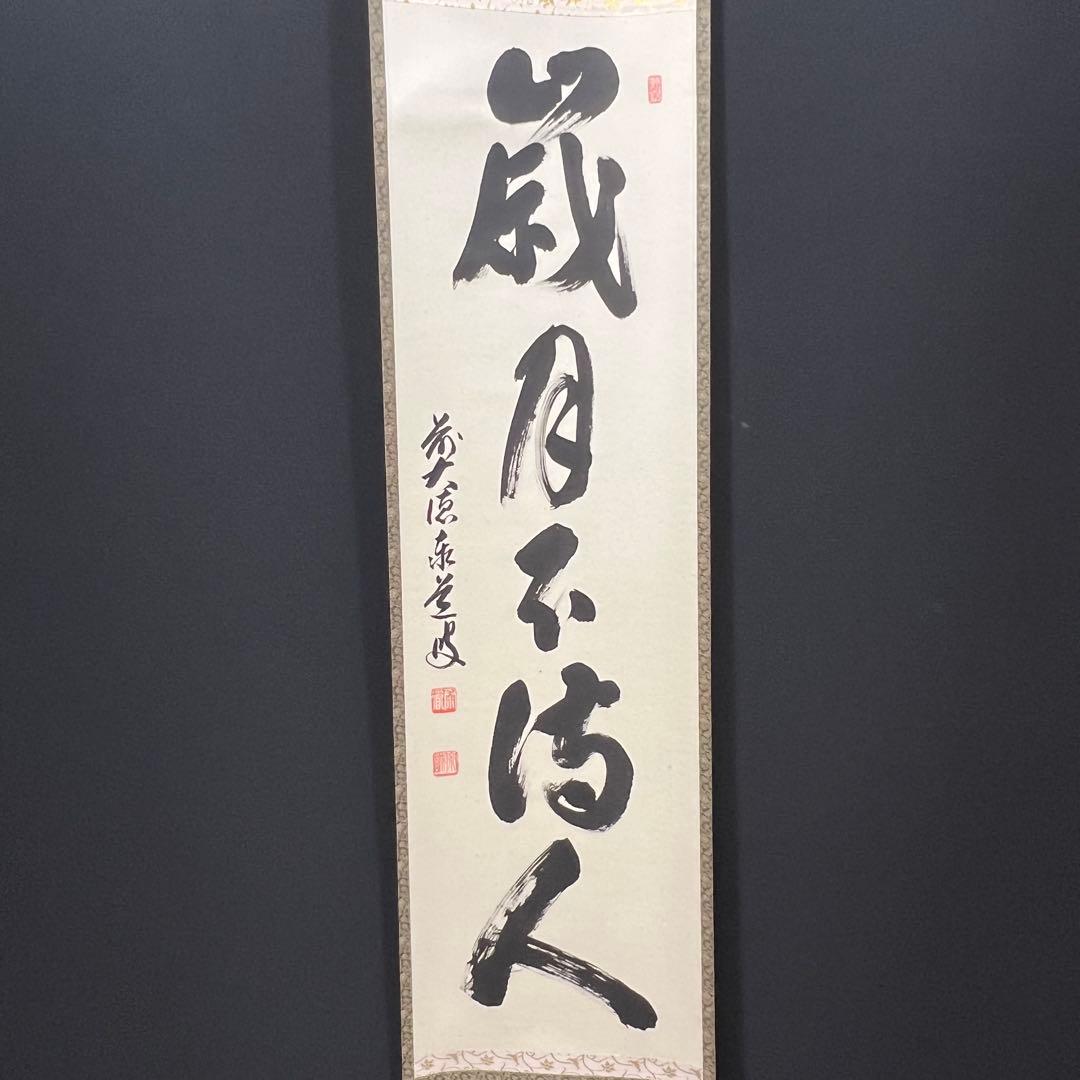 歳月不待人
前大徳泰道書